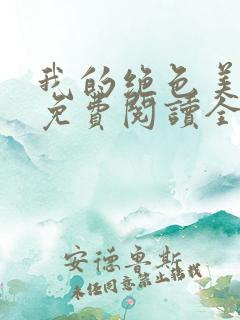 我的绝色美
免費閱讀全
安德鲁斯
未经同意禁止转载